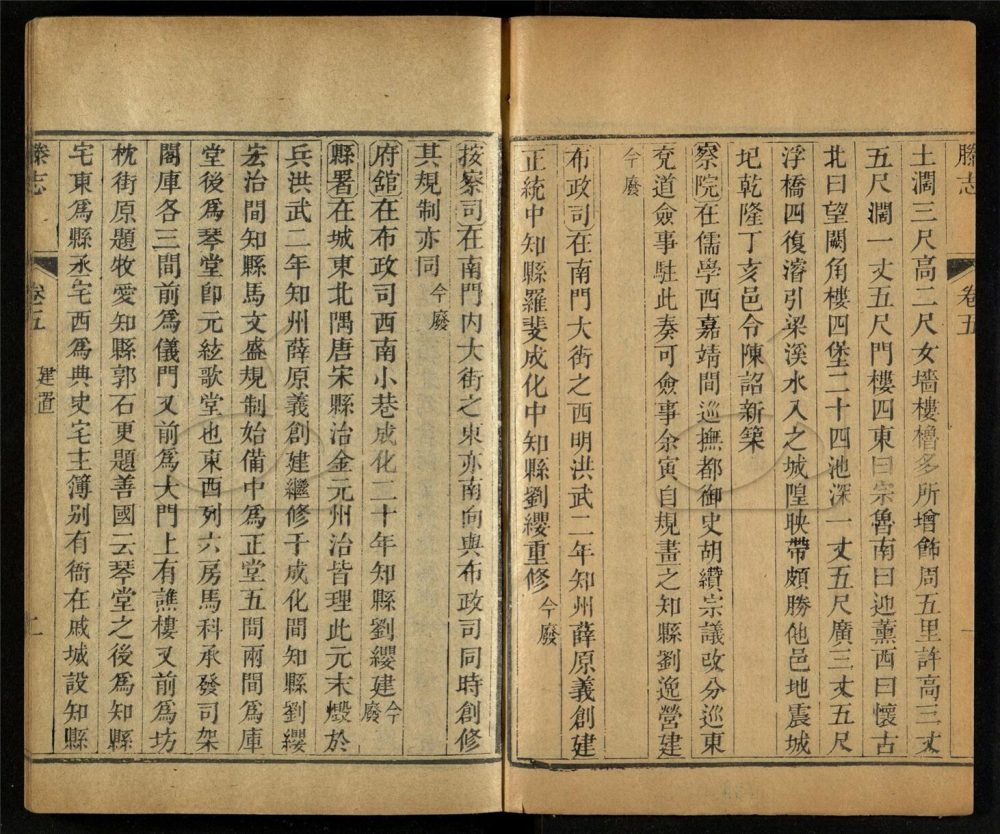 滕志
卷五
土濶三尺高二尺女墻樓櫓多所增飾周五里許高三丈
五尺濶一丈五尺門樓四東曰宗魯南曰迎薰西曰懷古
北曰望闕角樓四堡二十四池深一丈五尺廣三丈五尺
浮橋四復濬引梁溪水入之城隍映帶頗勝他邑地震城
圮乾隆丁亥邑令陳詔新築
察院在儒學西嘉靖間巡撫都御史胡纘宗議改分巡東
兗道僉事駐此奏可僉事余寅自規畫之知縣劉逸營建
今廢
布政司在南門大街之西明洪武二年知州薛原義創建
正統中知縣羅斐成化中知縣劉纓重修今廢
按察司在南門內大街之東亦南向與布政司同時創修
其規制亦同今廢
府舘在布政司西南小巷成化二十年知縣劉纓建今廢
縣署在城東北隅唐宋縣治金元州治皆理此元末燬於
兵洪武二年知州薛原義創建繼修于成化間知縣劉纓
宏治間知縣馬文盛規制始備中為正堂五間兩間為庫
堂後為琴堂卽元絃歌堂也東西列六房馬科承發司架
閣庫各三間前為儀門又前為大門上有譙樓又前為坊
枕街原題牧愛知縣郭石更題善國云琴堂之後為知縣
宅東為縣丞宅西為典史宅主簿别有衙在戚城設知縣
滕志
卷五
建置